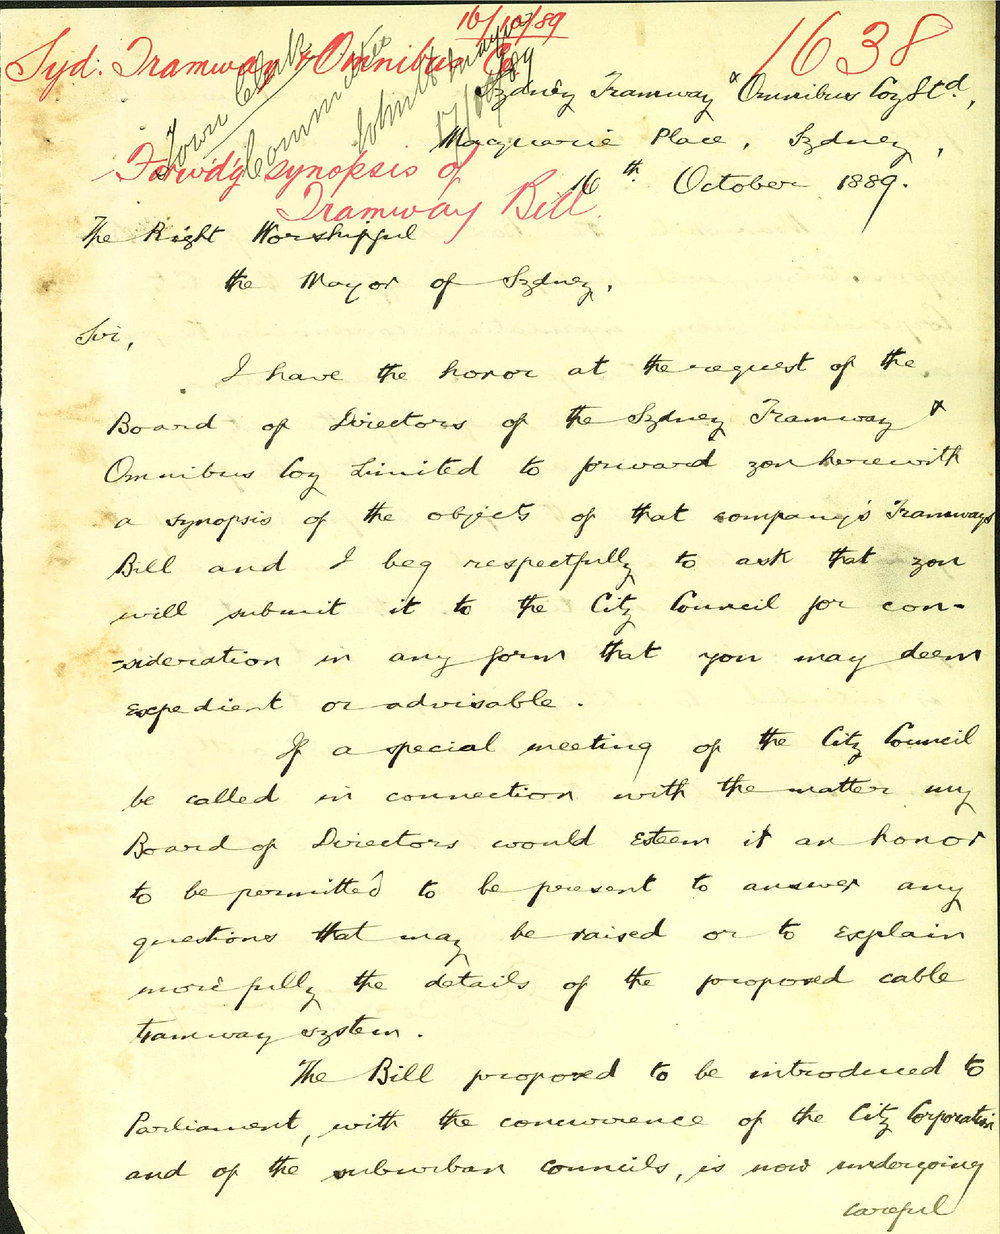 16/10/89
1638
Syd: Tramway & Omnibus Co
Town Clerk
Committee
17/10/89
Forwd'g synopsis of
Tramway Bill
Sydney Tramway & Omnibus Coy Ltd.,
Macquarie Place, Sydney,
16th October 1889.
The Right Worshipful
the Mayor of Sydney,
Sir,
I have the honor at the request of the
Board of Directors of the Sydney Tramway &
Omnibus Coy Limited to forward you herewith
a synopsis of the objects of that company's Tramways
Bill and I beg respectfully to ask that you
will submit it to the City Council for con-
-sideration in any form that you may deem
expedient or advisable.
If a special meeting of the City Council
be called in connection with the matter my
Board of Directors would esteem it an honor
to be permitted to be present to answer any
questions that may be raised or to explain
more fully the details of the proposed cable
tramway system.
The Bill proposed to be introduced to
Parliament, with the concurrence of the City Corporation
and of the suburban councils, is now undergoing
careful